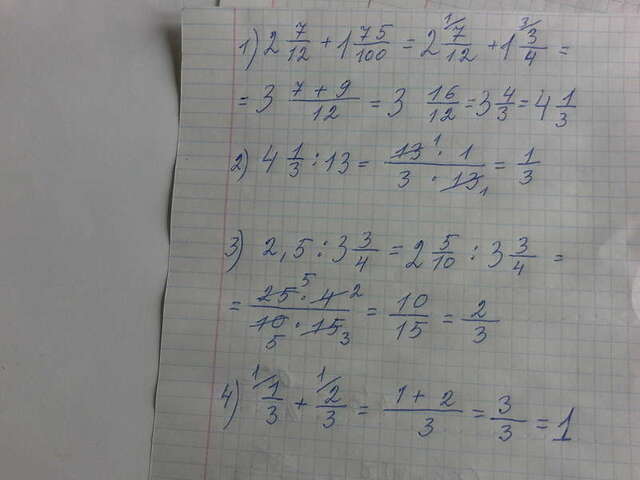 1) 2 7/12 + 1 75/100 = 2 1/ 7/12 + 1 3/ 3/4 =
= 3 7 + 9/12 = 3 16/12 = 3 4/3 = 4 1/3
2) 4 1/3 : 13 = 13 1 · 1/3 · 13 1 = 1/3
3) 2,5 : 3 3/4 = 2 5/10 : 3 3/4 =
= 25 5 · 4 2/10 5 · 15 3 = 10/15 = 2/3
4) 1/ 1/3 + 1/ 2/3 = 1 + 2/3 = 3/3 = 1